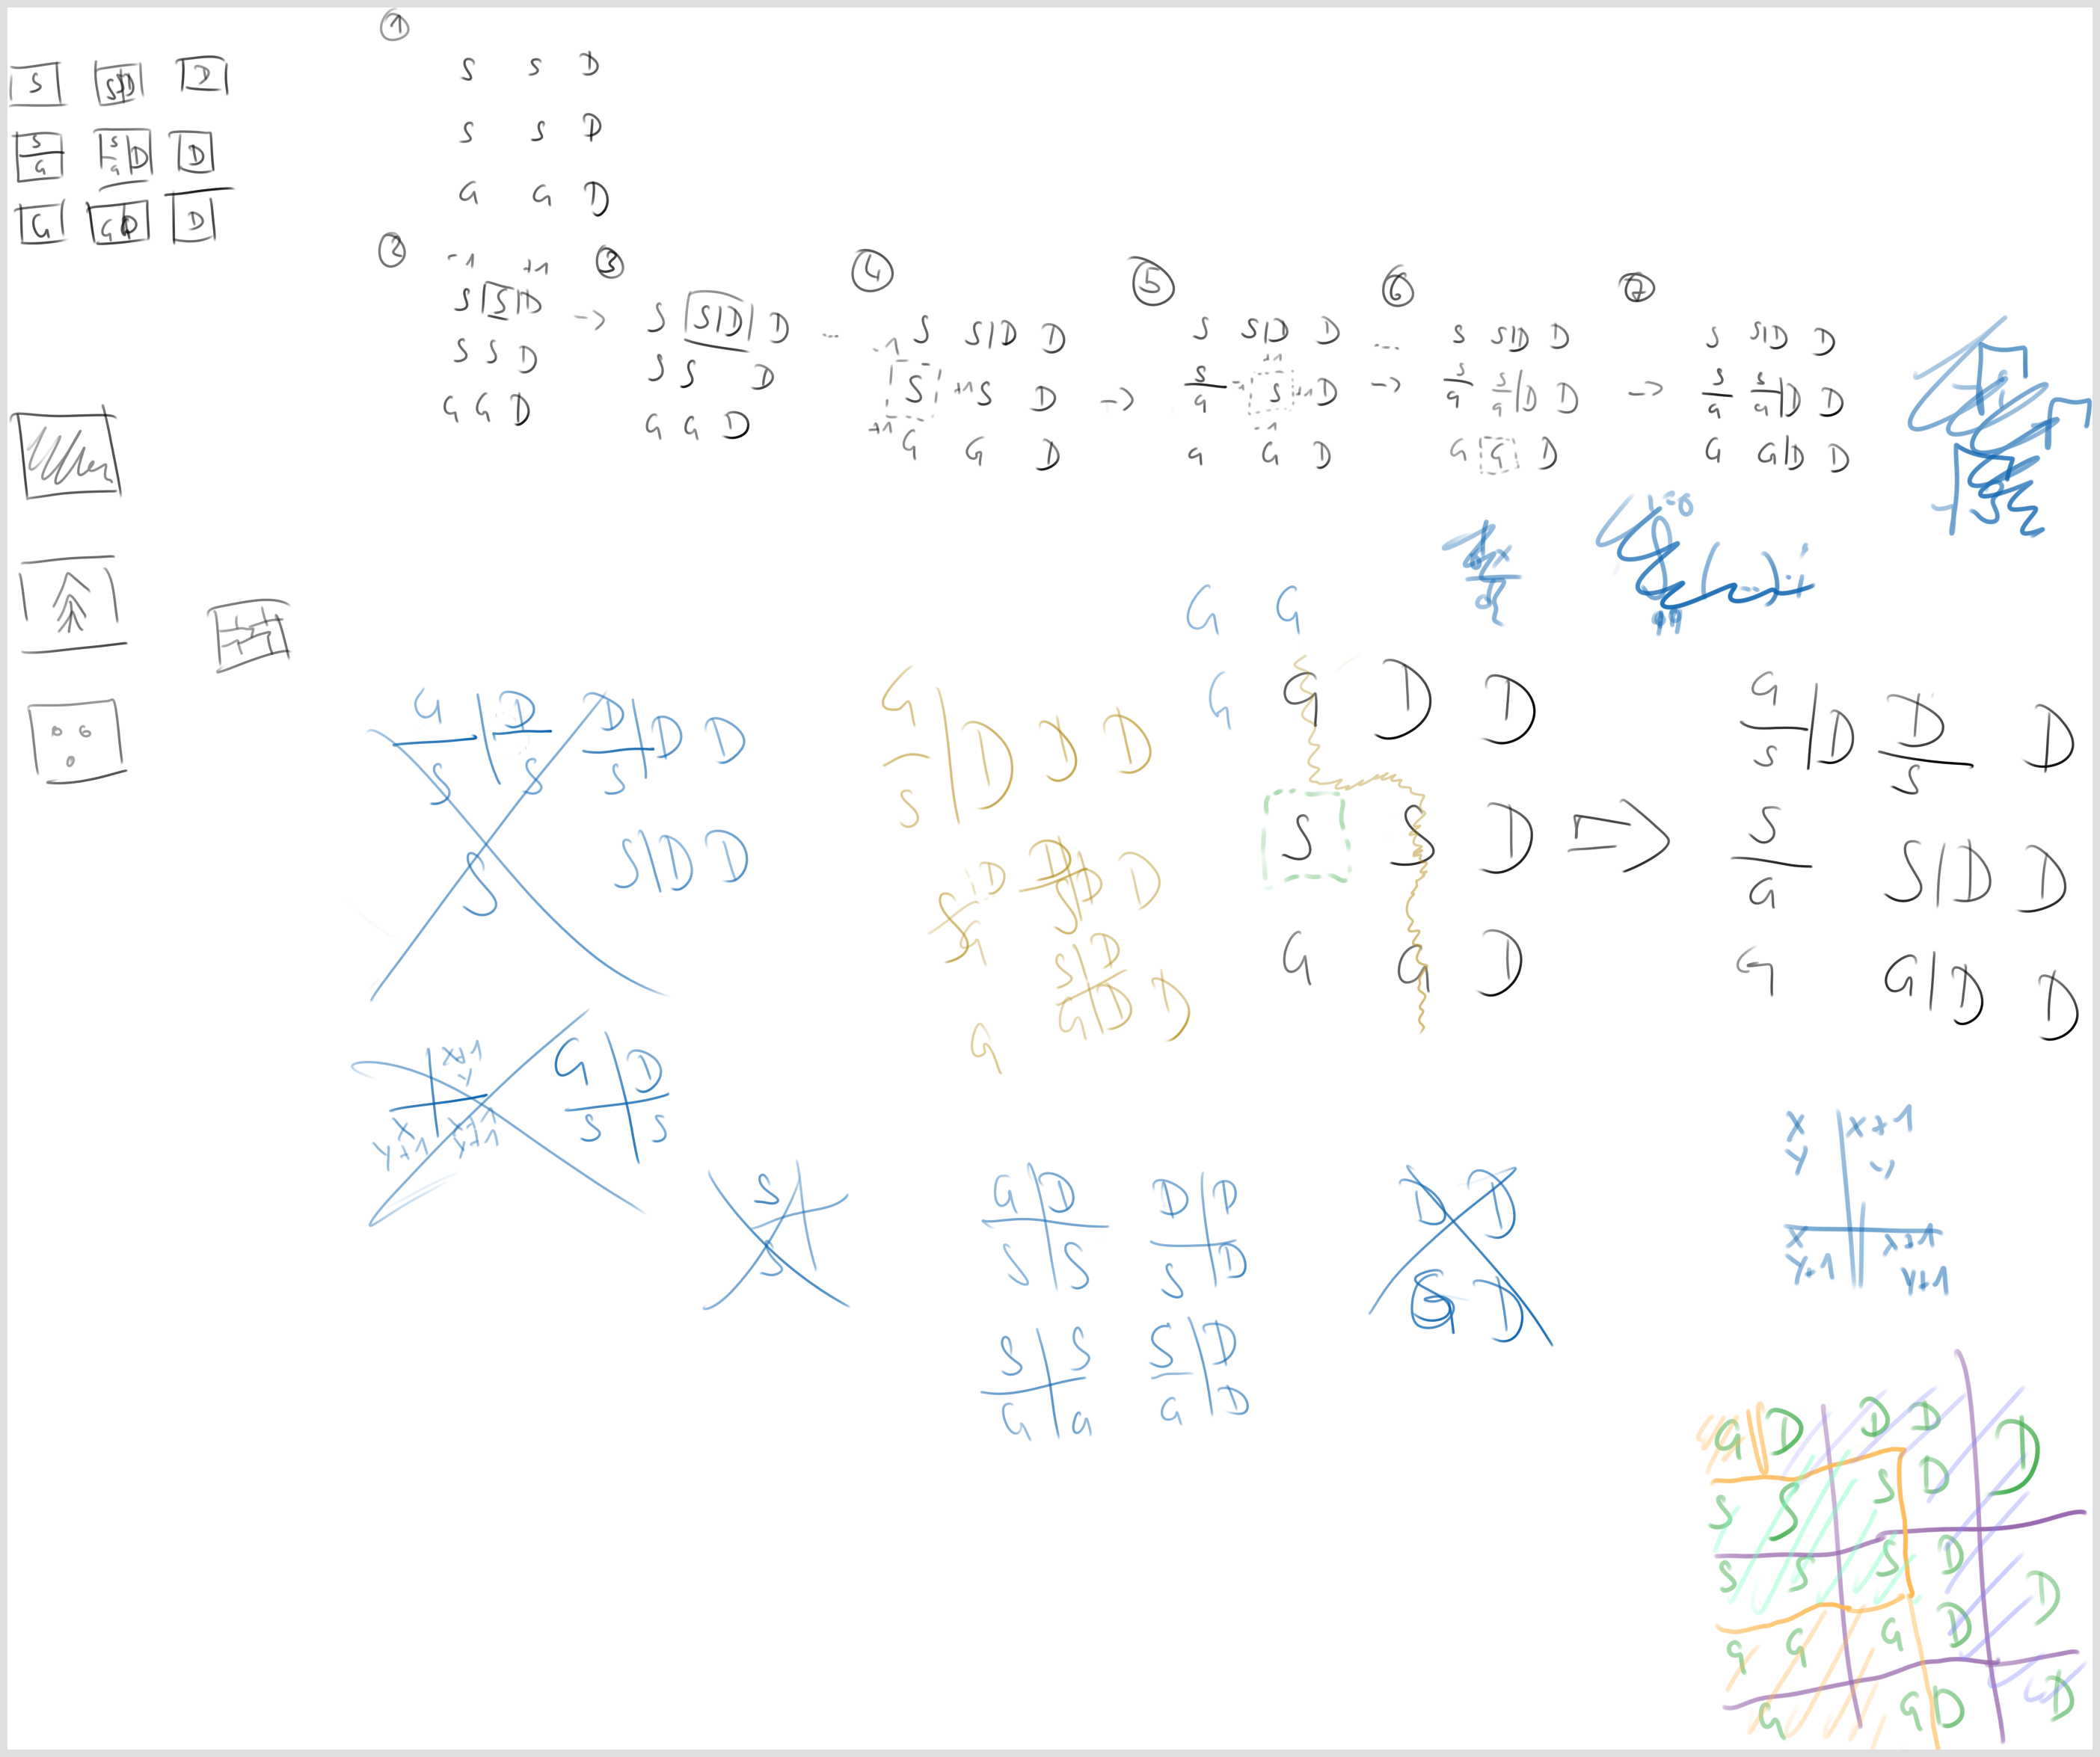 1
S S D
S S D
G G D
S S|D D
S/G S/G|D D
G G|D D
2
-1 +1
S|S|D
S S D
G G D
->
3
S S|D|D
S S D
G G D
...
4
S S|D D
-1
S +1 S D
+1
G G D
->
5
S S|D D
S/G - S +1 D
+1
-1
G G D
...
->
6
S S|D D
S/G S/G|D D
G G D
->
7
S S|D D
S/G S/G|D D
G G|D D
G G
G G D D
S S D
G G D
G/S|D D/S D
S/G S|D D
G G|D D
G/S|D D D
G
D
G|D D/S D/S|D D
S S|D D
x+1
y
x x+1
y+1 y+1
G|D
S|S
S
S
G|D
S|S
D|D
S|D
S|S
G|G
S|D
G|D
D D
D
x x+1
y y
x x+1
y+1 y+1
G D D D D
S S S D
S S S D D
G G G D
G G D D